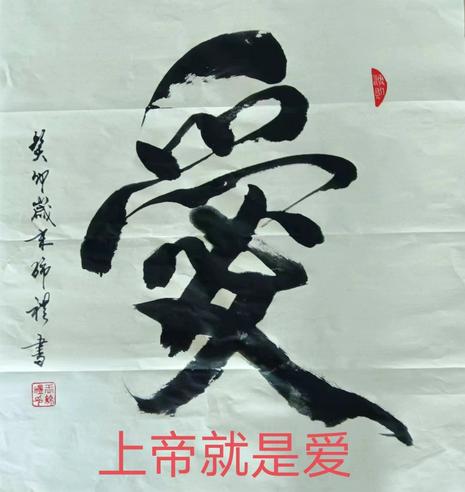 愛
癸卯歲末錦祺書
上帝就是爱